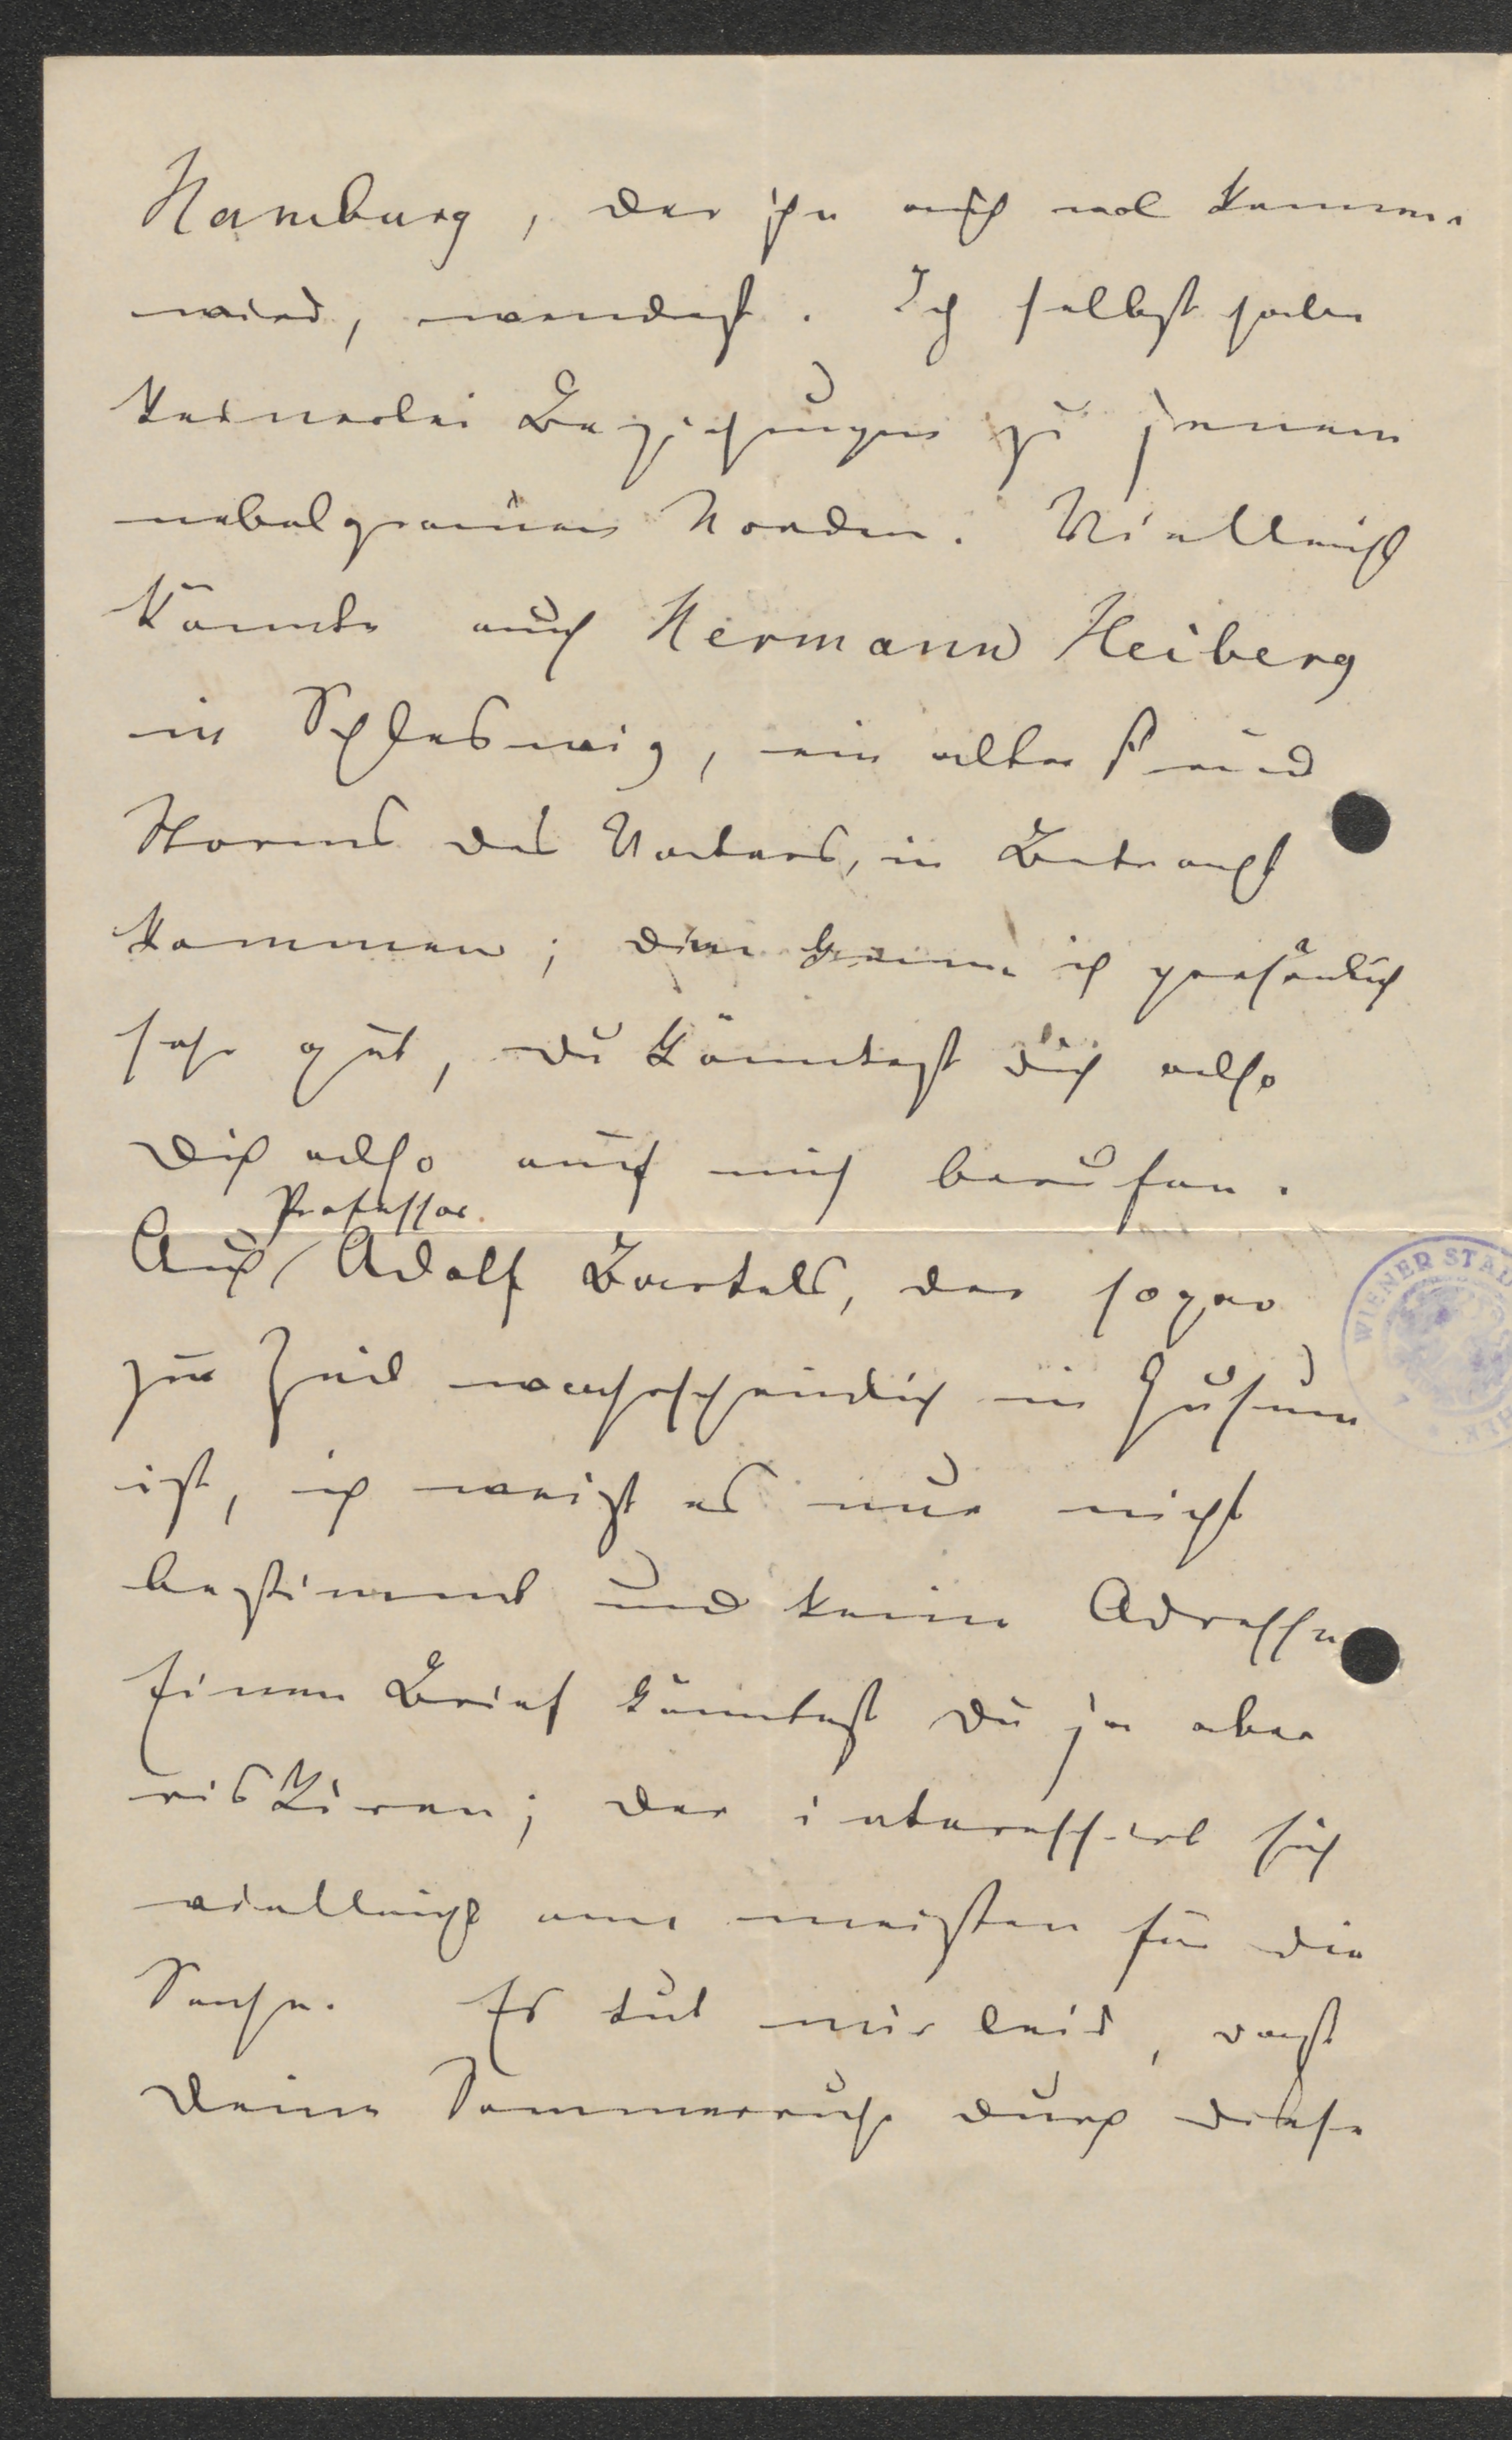 Hamburg, der ihn auch mal kennen
wird, wendest. Ich selbst habe
keinerlei Beziehungen zu jenem
nebelgrauen Norden. Vielleicht
könnte auch Hermann Heiberg
in Schleswig, ein alter Freund
Storms des Vaters, in Betracht
kommen; den kenne ich persönlich
sehr gut, du könntest dich also
dich also auf mich berufen.
Professor
Auch Adolf Bartels, der sogar
zur Zeit wahrscheinlich in Husum
ist, ich weiß es nur nicht
bestimmt und keine Adresse
Einen Brief könntest du ja aber
riskiren; der interessirt sich
vielleicht am meisten für die
Sache. Es tut mir leid, daß
deine Sommerruhe durch diese
WIENER STAD